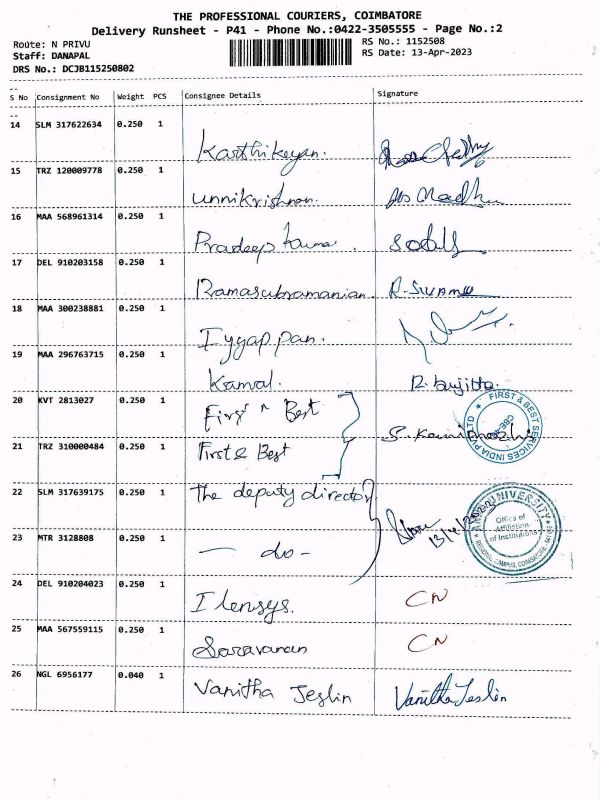 THE PROFESSIONAL COURIERS, COIMBATORE
Delivery Runsheet - P41 - Phone No.:0422-3505555 - Page No.:2
Route: N PRIVU RS No.: 1152508
Staff: DANAPAL RS Date: 13-Apr-2023
DRS No.: DCJB115250802
S No Consignment No Weight PCS Consignee Details Signature
14 SLM 317622634 0.250 1
Karthikeyan.
15 TRZ 120009778 0.250 1
Unnikrishnan.
16 MAA 568961314 0.250 1
Pradeep Kumar.
17 DEL 910203158 0.250 1
Ramasubramanian. R-Swamy
18 MAA 300238881 0.250 1
Iyyappan.
19 MAA 296763715 0.250 1
Kamal.
20 KVT 2813027 0.250 1
First n Best
FIRST & BEST SERVICES INDIA PVT LTD
CBE
21 TRZ 310000484 0.250 1
First & Best
22 SLM 317639175 0.250 1
The deputy director
UNIVERSITY
Office of
Affiliation
of Institutions
REGIONAL CAMPUS, COIMBATORE
23 MTR 3128808 0.250 1
- do -
24 DEL 910204023 0.250 1
Ilensys. CN
25 MAA 567559115 0.250 1
Saravanan CN
26 NGL 6956177 0.040 1
Vanitha Jeslin Vanitha Jeslin